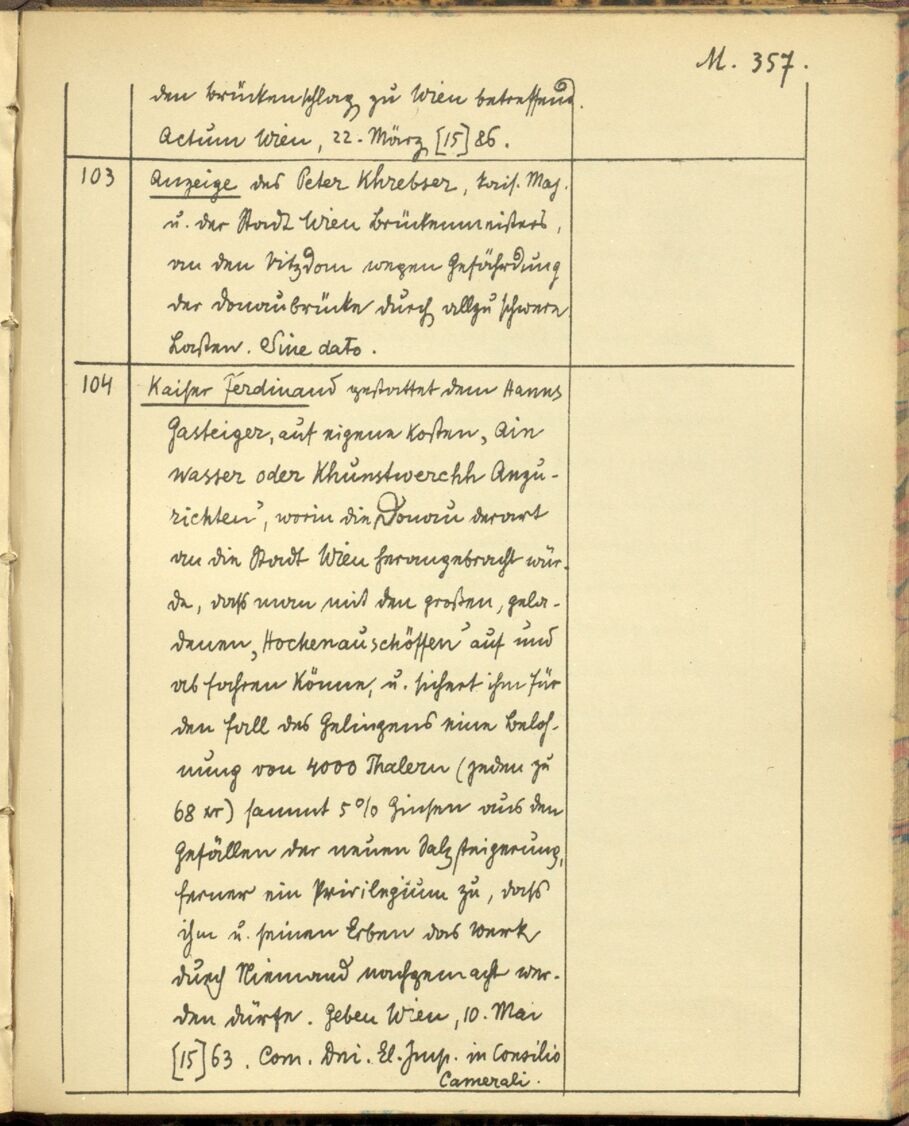 M. 357.
den Brückenschlag zu Wien betreffend.
Actum Wien, 22. März [15]86.
103 Anzeige des Peter Khrebser, kais. Maj.
u. der Stadt Wien Brückenmeisters,
an den Vitzdom wegen Gefährdung
der Donaubrücke durch allzu schwere
Lasten. Sine dato.
104 Kaiser Ferdinand gestattet dem Hanns
Gasteiger, auf eigene Kosten „Ain
wasser oder Khunstwerchh Anzu-
richten", worin die Donau derart
an die Stadt Wien herangebracht wür-
de, dass man mit den großen, gela-
denen „Hochenauschöffen" auf und
ab fahren könne, u. sichert ihm für
den Fall des Gelingens eine Beloh-
nung von 4000 Thalern (jeden zu
68 xr) sammt 5% Zinsen aus den
Gefällen der neuen Salzsteigerung,
ferner ein Privilegium zu, dass
ihm u. seinen Erben das Werk
durch Niemand nachgemacht wer-
den dürfe. Geben Wien, 10. Mai
[15]63. Com. Dni. El. Imp. in Consilio
Camerali.